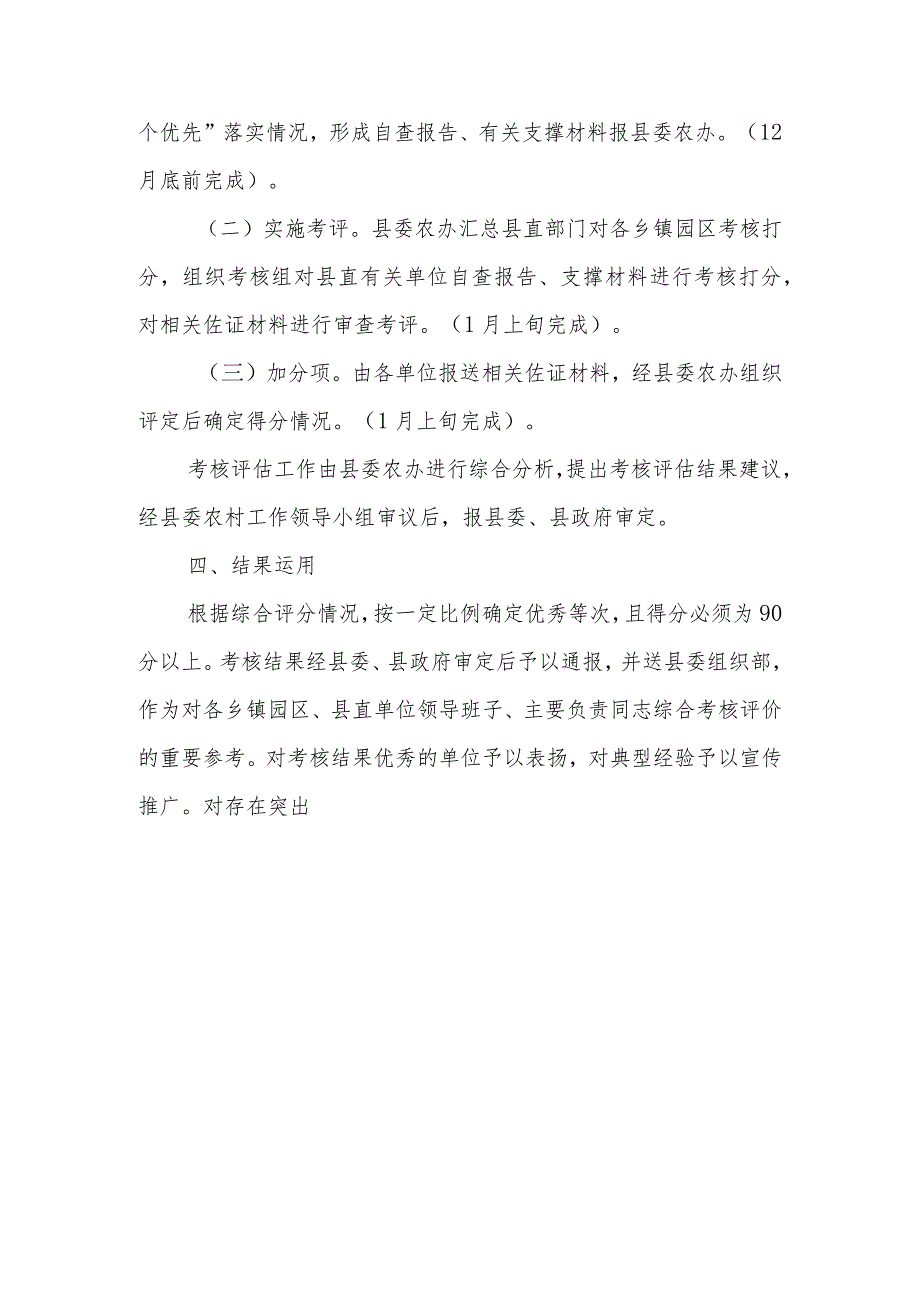 个优先”落实情况，形成自查报告、有关支撑材料报县委农办。（12
月底前完成）。
（二）实施考评。县委农办汇总县直部门对各乡镇园区考核打
分，组织考核组对县直有关单位自查报告、支撑材料进行考核打分，
对相关佐证材料进行审查考评。（1月上旬完成）。
（三）加分项。由各单位报送相关佐证材料，经县委农办组织
评定后确定得分情况。（1月上旬完成）。
考核评估工作由县委农办进行综合分析，提出考核评估结果建议，
经县委农村工作领导小组审议后，报县委、县政府审定。
四、结果运用
根据综合评分情况，按一定比例确定优秀等次，且得分必须为90
分以上。考核结果经县委、县政府审定后予以通报，并送县委组织部，
作为对各乡镇园区、县直单位领导班子、主要负责同志综合考核评价
的重要参考。对考核结果优秀的单位予以表扬，对典型经验予以宣传
推广。对存在突出